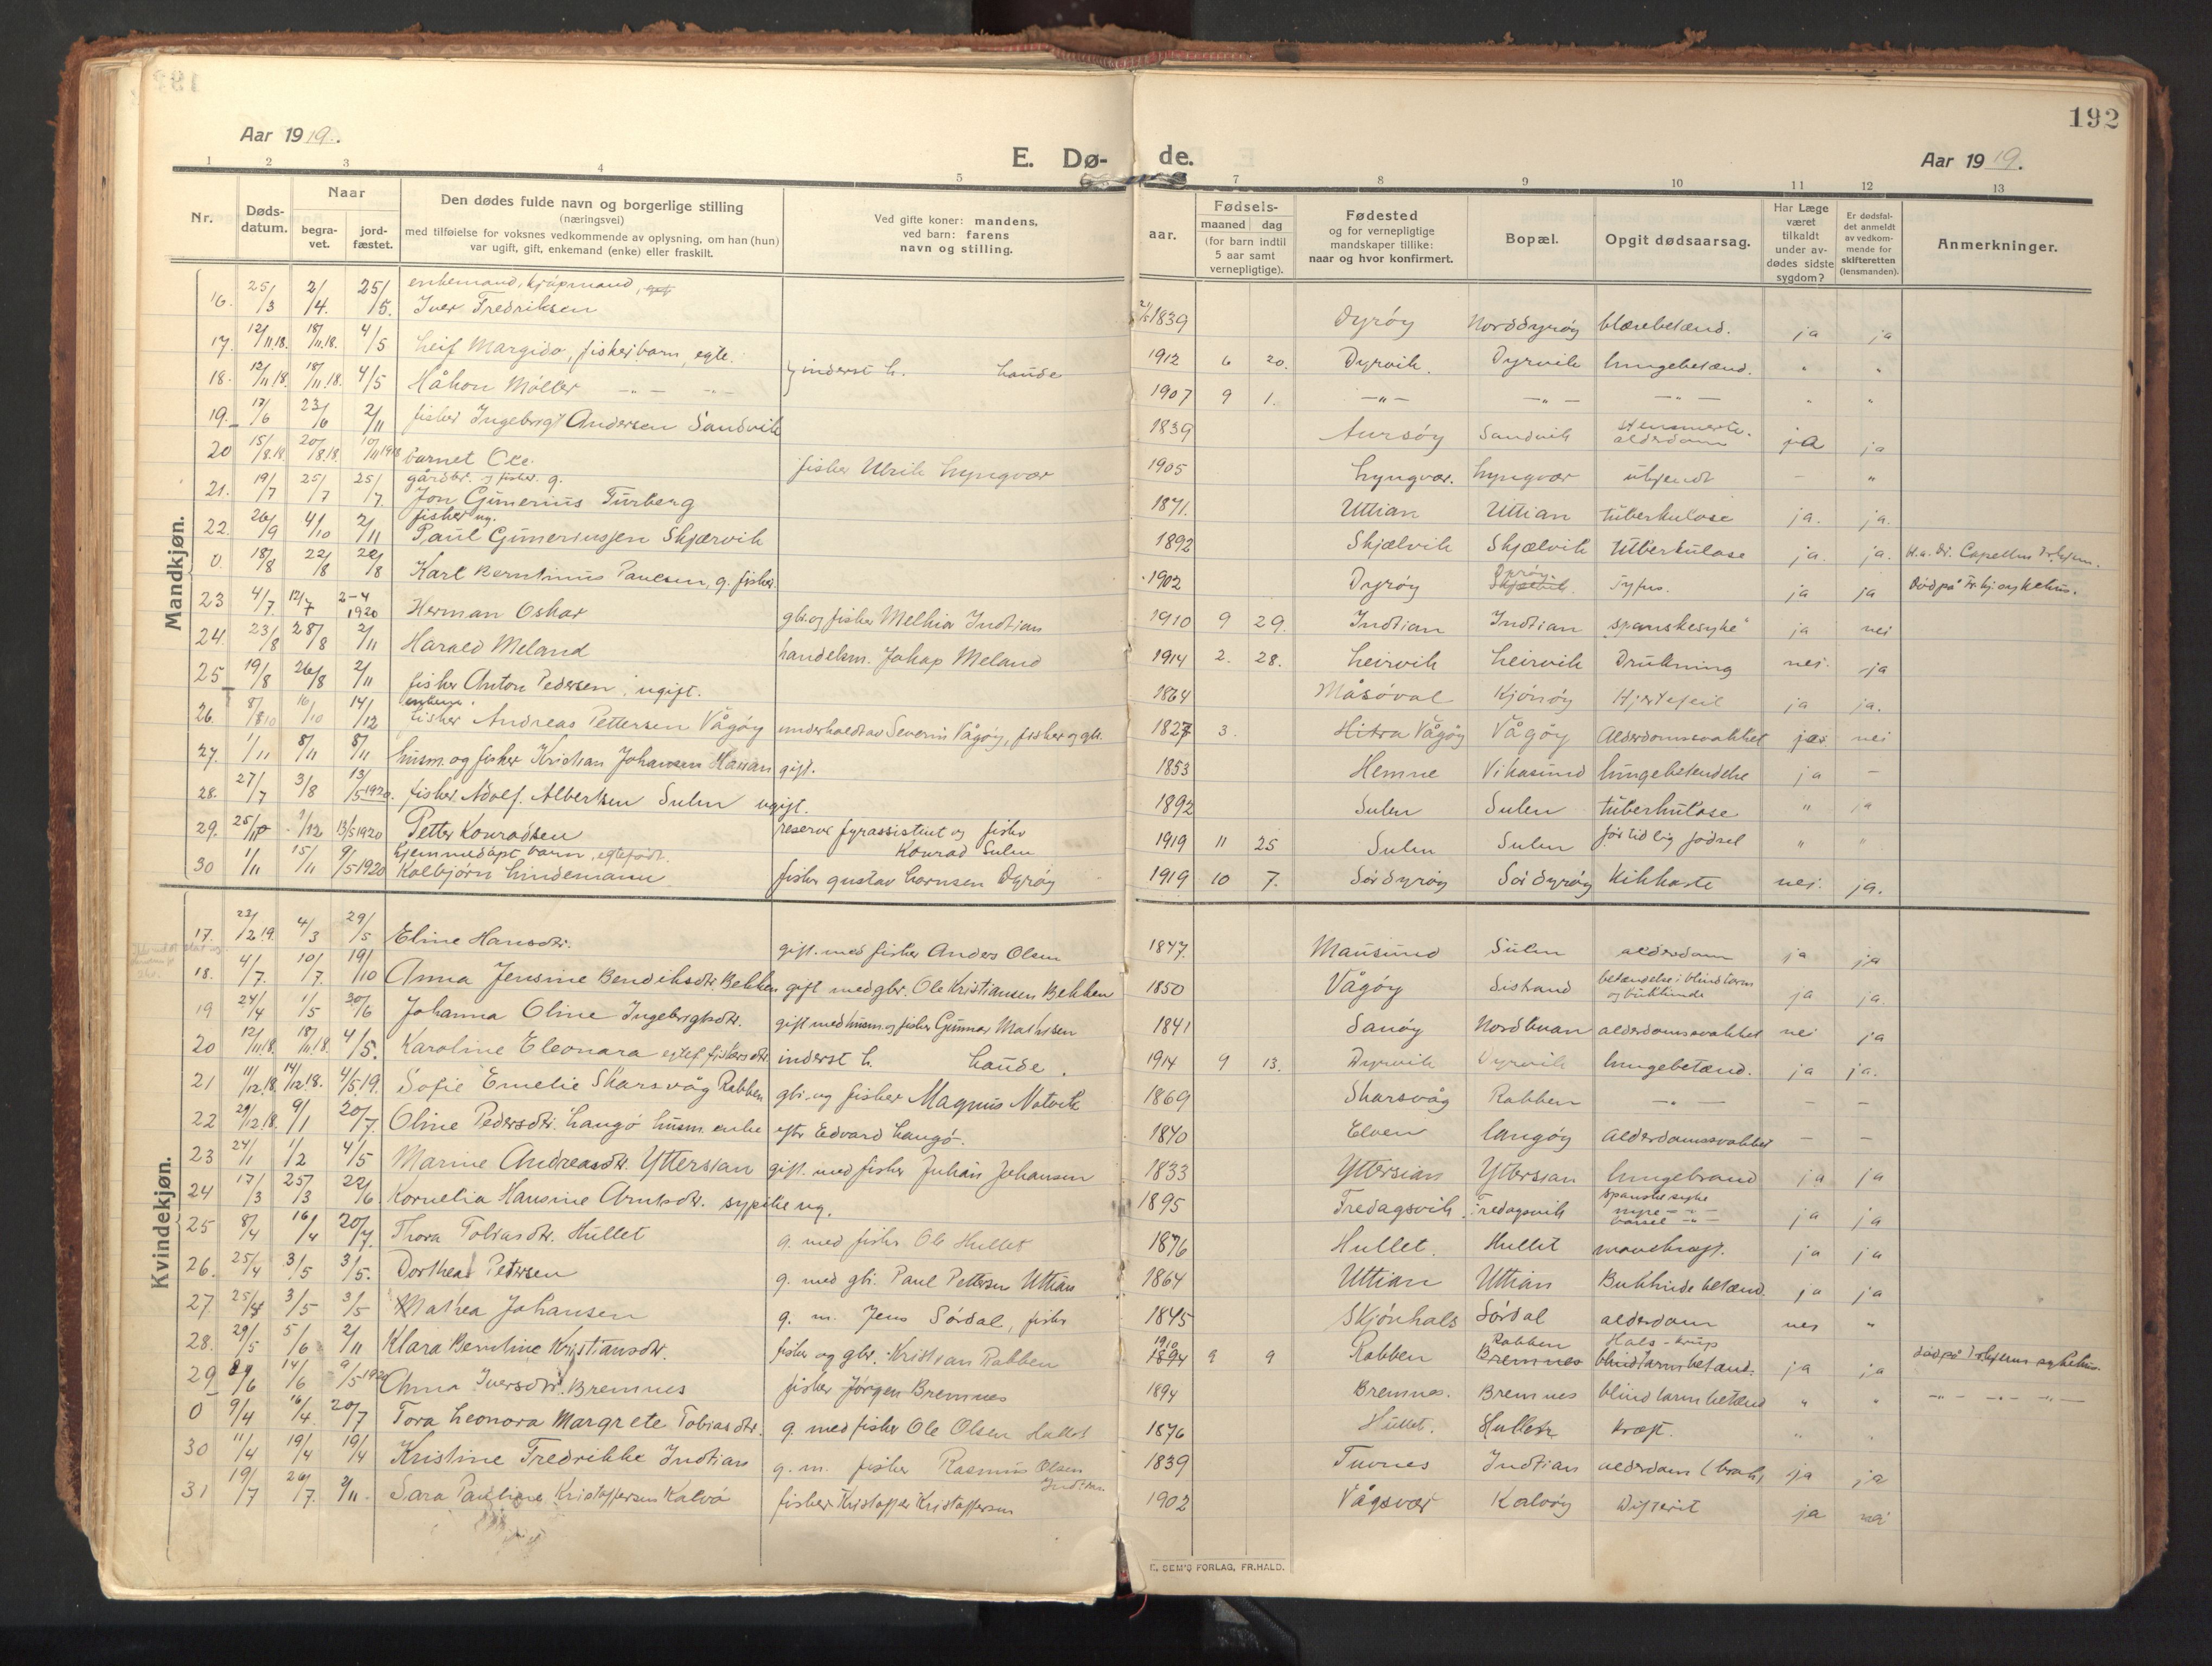 192
Aar 1919.
E. Dø- de.
Aar 1919.
1 2 3 4 5 7 8 9 10 11 12 13
Nr.
Døds-
datum.
Naar
begra-
vet.
jord-
fæstet.
Den dødes fulde navn og borgerlige stilling
(næringsvei)
med tilføielse for voksnes vedkommende av oplysning, om han (hun)
var ugift, gift, enkemand (enke) eller fraskilt.
Ved gifte koner: mandens,
ved barn: farens
navn og stilling.
aar.
Fødsels-
maaned dag
(for barn indtil
5 aar samt
vernepligtige).
Fødested
og for vernepligtige
mandskaper tillike:
naar og hvor konfirmert.
Bopæl.
Opgit dødsaarsag.
Har Læge
været
tilkaldt
under av-
dødes sidste
sygdom?
Er dødsfal-
det anmeldt
av vedkom-
mende for
skifteretten
(lensmanden).
Anmerkninger.
Mandkjøn.
enkemand, kjøpmand,
16. 25/3 2/4. 25/5. Iver Fredriksen 1839 Dyröy Norddyröy blærebetænd. ja ja
17. 12/11.18. 18/11.18. 4/5 Leif Margido, fiskerbarn, egte. } inderst h. Laude 1912 6 20. Dyrvik. Dyrvik lungebetænd. " "
18. 12/11.18. 18/11.18. 4/5 Håkon Møller — " — 1907 9 1. —"— —"— —"— " "
19. 17/6 23/6 2/11 fisker Ingebrigt Andersen Sandvik 1839 Aursöy Sandvik alderdom ja ja
20 15/8.18. 20/8.18. 10/11 1918 barnet Ole. fisker Ulrik Lyngvær 1905 Lyngvær. Lyngvær ukjendt — "
gårdbr. og fisker. g.
21. 19/7 25/7 25/7. Jon Gunerius Turberg 1871. Uttian Uttian tuberkulose ja. ja.
fisker ug.
22. 26/9 4/10 2/11 Paul Gunerussen Skjærvik 1892 Skjælvik Skjælvik tuberkulose ja. ja.
0. 18/8 22/8 22/8 Karl Berntinus Paulsen, g. fisker. 1902 Dyröy Dyröy Tyfus. ja ja Död på Tr.hj. sykehus.
23 4/7. 12/7 2-4 1920 Herman Oskar gbr. og fisker Melkior Indtian 1910 9 29. Indtian Indtian spanskesyke" ja nei
24. 23/8 28/8 2/11 Harald Meland handelsm. Johap Meland 1914 2. 28. Leirvik Leirvik Drukning nei. ja
25 19/8 26/8 2/11 fisker Anton Pedersen, ugift. 1864 Måsöval Kjönöy Hjertefeil ja ja.
26. 8/10 16/10 14/12 fisker Andreas Pettersen Vågöy underholdt av Severin Vågöy, fisker og gbr. 1827 3. Hitra Vågöy Vågöy Alderdomssvakhet ja nei
27. 1/11 8/11 8/11 husm. og fisker Kristian Johansen Hanan gift. 1853 Hemne Vikasund lungebetendelse ja —
28. 27/7 3/8 13/5 1920. fisker. Adolf. Albertsen Sulen ugift. 1892 Sulen Sulen tuberkulose " ja
29. 25/11 1/12 13/5 1920 Petter Konradsen reserve fyrassistent og fisker 1919 11 25 Sulen Sulen for tidlig födsel " "
hjemmedöpt barn, egtefödt. Konrad Sulen
30 1/11 15/11 9/5 1920 Kolbjörn Lindemann fisker Gustav Lornsen Dyröy 1919 10 7. Sördyröy Sördyröy Kikhoste nei. ja.
Kvindekjøn.
17. 23/2 19. 4/3 29/5 Eline Hansdtr. gift. med fisker Anders Olsen 1847. Mausund Sulen alderdom ja ja
18. 4/7. 10/7. 19/10 Anna Jensine Bendiksdtr. Bekken gift med gbr. Ole Kristiansen Bekken 1850 Vågöy Sistand betændelse i blindtarm og bukhinde ja ja.
19 24/4 1/5 30/6 Johanna Oline Ingebrigtsdtr. gift med husm. og fisker Gunnar Mathisen 1841 Sanöy Nordbuan alderdomssvakhet nei ja
20 12/11.18. 18/11.18. 4/5. Karoline Eleonara egtef. fiskersdtr inderst h. Laude. 1914 9 13. Dyrvik Dyrvik lungebetænd. ja ja.
21 11/12.18. 14/12 18. 4/5.19. Sofie Emelie Skarsvåg Rabben gbr. og fisker Magnus Notvik 1869 Skarsvåg Rabben —"— — —
22 29/12.18. 9/1 20/7. Oline Pedersdtr. Langö husm. enke eftr. Edvard Langö. 1840 Elven Langöy Alderdomssvakhet — —
23 24/1 1/2 4/5 Marine Andreasdtr. Yttersian gift. med fisker Julian Johansen 1833 Yttersian Yttersian lungebrand ja ja
24 17/3 25/3 22/6 Kornelia Hansine Arntsdtr. sypike ug. 1895 Fredagsvik. Fredagsvik spanske syke nyre —"— ja ja
25 8/4 16/4 20/7. Thora Tobiasdtr. Hullet g. med fisker Ole Hullet 1876 Hullet. Hullet mavekræft. ja ja
26. 25/4 3/5 3/5. Dorthea Petersen g. med gbr. Paul Pettersen Uttian 1864 Uttian Uttian Bukhinde betænd. ja ja
27 25/4 3/5 3/5 Mathea Johansen g. m. Jens Sördal, fisker 1845 Skjönhals Sördal alderdom nei "
28. 29/5 5/6 2/11 Klara Berntine Kristiansdtr. fisker og gbr. Kristian Rabben 1910 1894 9 9 Rabben Rabben Bremnes Hals-krup blindtarmbetænd. ja ja död på Trhjems sykehus.
29 6 14/6 9/5 1920 Anna Iversdtr. Bremnes fisker Jörgen Bremnes 1894 Bremnes. Bremnes blindtarmbetænd " " —"— —"— —"—
0 9/4 16/4. 20/7 Tora Leonora Margrete Tobiasdtr. g. med fisker Ole Olsen Hullet 1876 Hullet. Hullet kræft. " "
30 11/4 19/4 19/4 Kristine Fredrikke Indtian g. m. fisker Rasmus Olsen Indtian. 1839 Tuvnes Indtian alderdom ja ja
31 19/7 26/7. 2/11. Sara Pauline Kristoffersen Kalvö fisker Kristoffer Kristoffersen 1902 Vågsvær Kalvöy Difterit ja nei
E. SEM'S FORLAG, FR.HALD.